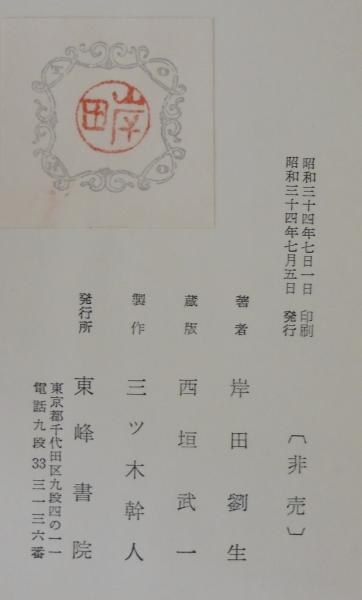 昭和三十四年七日一日 印刷
昭和三十四年七月五日 発行
〔非売〕
著者 岸田劉生
蔵版 西垣武一
製作 三ツ木幹人
発行所 東峰書院
東京都千代田区九段四の一一
電話九段33三一三六番
岸田